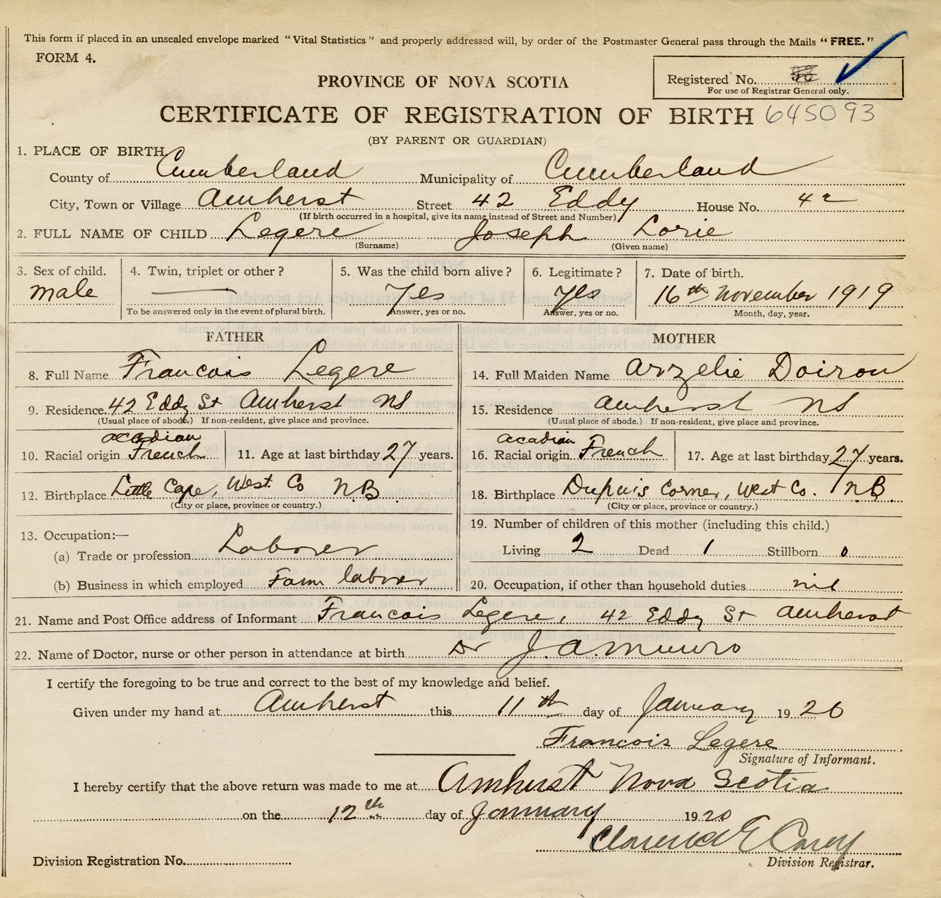 This form if placed in an unsealed envelope marked "Vital Statistics" and properly addressed will, by order of the Postmaster General pass through the Mails "FREE."
FORM 4.
Registered No.
For use of Registrar General only.
PROVINCE OF NOVA SCOTIA
CERTIFICATE OF REGISTRATION OF BIRTH 645093
(BY PARENT OR GUARDIAN)
1. PLACE OF BIRTH
County of Cumberland Municipality of Cumberland
City, Town or Village Amherst Street 42 Eddy House No. 42
(If birth occurred in a hospital, give its name instead of Street and Number)
2. FULL NAME OF CHILD Legere Joseph Lorie
(Surname) (Given name)
3. Sex of child. 4. Twin, triplet or other? 5. Was the child born alive? 6. Legitimate? 7. Date of birth.
male — Yes Yes 16th November 1919
To be answered only in the event of plural birth. Answer, yes or no. Answer, yes or no. Month, day, year.
FATHER
8. Full Name Francois Legere
9. Residence 42 Eddy St Amherst NS
(Usual place of abode.) If non-resident, give place and province.
acadian
10. Racial origin French 11. Age at last birthday 27 years.
12. Birthplace Little Cape, West Co NB
(City or place, province or country.)
13. Occupation:—
(a) Trade or profession Laborer
(b) Business in which employed Farm laborer
MOTHER
14. Full Maiden Name Arzelie Doiron
15. Residence Amherst NS
(Usual place of abode.) If non-resident, give place and province.
acadian
16. Racial origin French 17. Age at last birthday 27 years.
18. Birthplace Dupuis Corner, West Co. NB
(City or place, province or country.)
19. Number of children of this mother (including this child.)
Living 2 Dead 1 Stillborn 0
20. Occupation, if other than household duties nil
21. Name and Post Office address of Informant Francois Legere, 42 Eddy St Amherst
22. Name of Doctor, nurse or other person in attendance at birth Dr J.A. Munro
I certify the foregoing to be true and correct to the best of my knowledge and belief.
Given under my hand at Amherst this 11th day of January 1920
Francois Legere
Signature of Informant.
I hereby certify that the above return was made to me at Amherst Nova Scotia
on the 12th day of January 1920
Clarence E Carey
Division Registration No. Division Registrar.